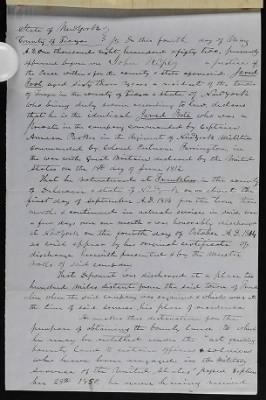 State of New York
County of Tioga } ss. On this fourth day of May
A.D. one thousand eight hundred & fifty two, personally
appeared before me John Ripley a justice of
the Peace within & for the county & state aforesaid Jared
Foot aged sixty three years a resident of the town
of Tioga in the county of Tioga & state of New York
who being duly sworn according to law, declares
that he is the identical Jared Foote who was a
Private in the company commanded by Captain
Anson Parker in the Regiment of New York Militia
commanded by Colonel Putnam Farrington in
the war with Great Britain declared by the United
States on the 18th day of June 1812
That he volunteered at Franklin in the county
of Delaware & state of New York on or about the
first day of September A.D. 1814 for the term three
months & continued in actual service in said war
a few days over one month & was honorably discharged
at New York on the fourth day of October A.D. 1814
as will appear by his original certificate of
discharge herewith presented & by the Muster
rolls of said company
That deponent was discharged at a place two
hundred miles distant from the said town of Frank
lin where the said company was organized & which was at
the time of said service, his place of residence
He makes this declaration for the
purpose of obtaining the bounty land to which
he may be entitled under the "act granting
bounty land to certain officers & soldiers
who have been engaged in the military
service of the United States" passed Septem
ber 28th 1850. he never having received